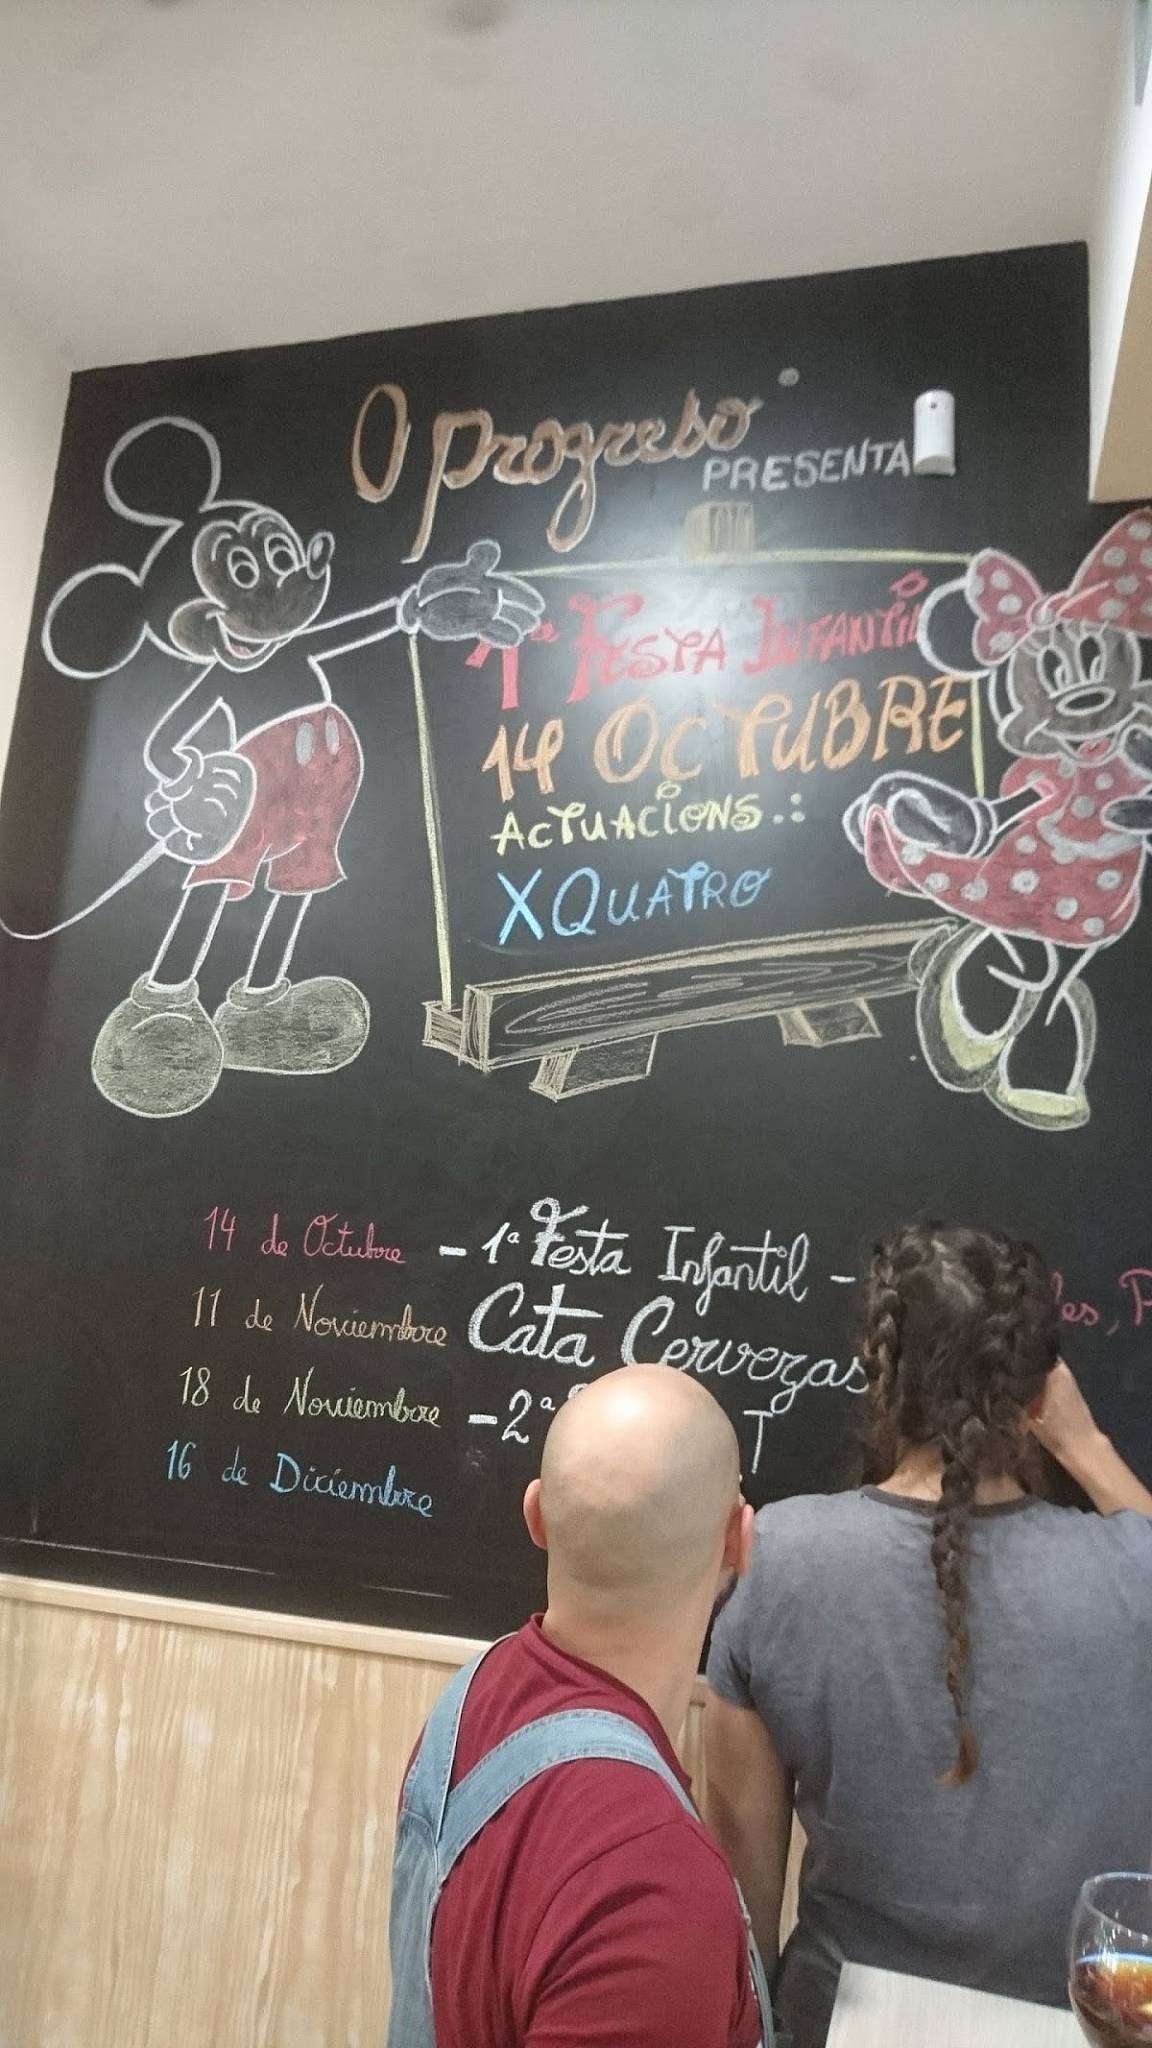 O Progreso
PRESENTA
1ª FESTA INFANTIL
14 OCTUBRE
ACTUACIONS.:
XQUATRO
14 de Octubre - 1ª Festa Infantil -
11 de Noviembre Cata Cervezas
18 de Noviembre - 2ª T
16 de Diciembre